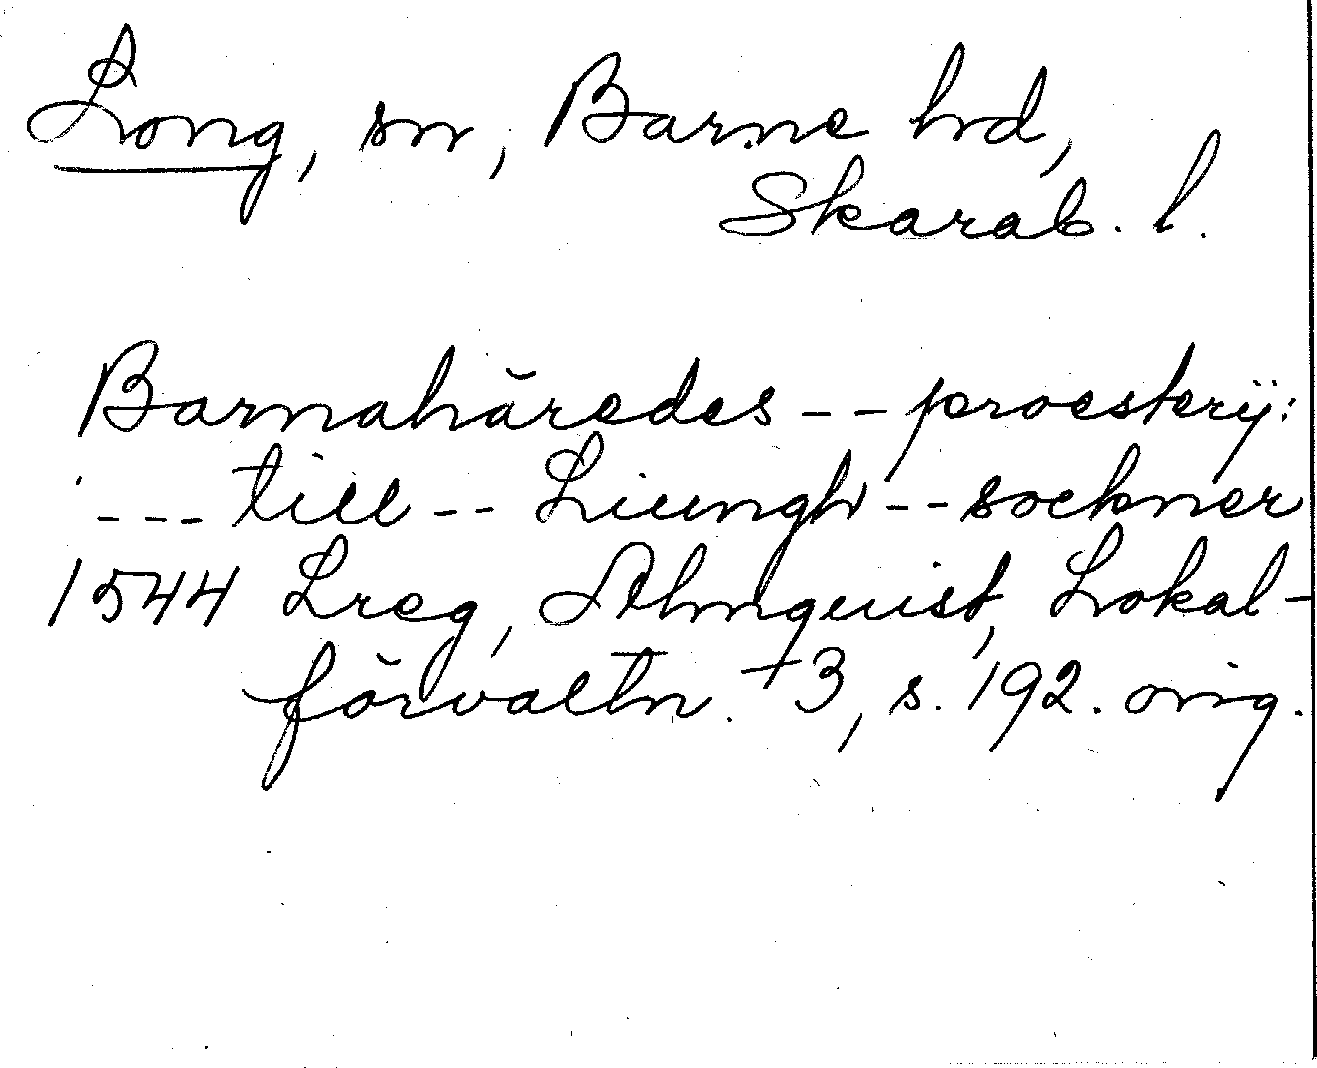 Long, sn, Barne hd,
Skarab. l.
Barnahäredes -- proesterÿ:
--- till -- Liungh -- sockner
1544 Lreg, Almquist, Lokal-
förvaltn. +3, s. 192. orig.